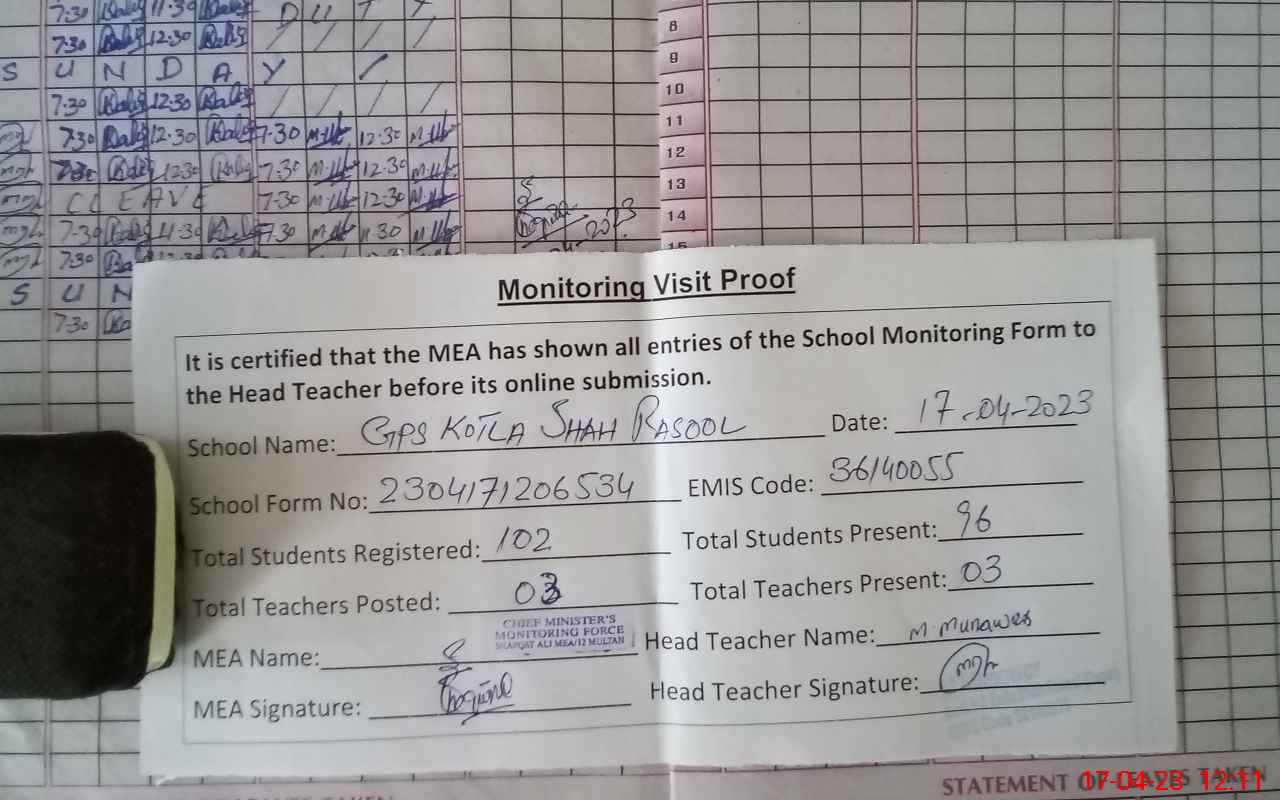 7:30 11:30 D U T Y
7:30 12:30 / / / /
S U N D A Y /
7:30 12:30 / / / /
7:30 12:30 7:30 12:30
7:30 12:30 7:30 12:30
7:30 12:30
7:30 11:30 7:30 11:30
7:30
S U N
7:30
8
9
10
11
12
13
14
15
2023
Monitoring Visit Proof
It is certified that the MEA has shown all entries of the School Monitoring Form to
the Head Teacher before its online submission.
School Name: GPS KOTLA SHAH RASOOL Date: 17-04-2023
School Form No: 2304171206534 EMIS Code: 36140055
Total Students Registered: 102 Total Students Present: 96
Total Teachers Posted: 03 Total Teachers Present: 03
CHIEF MINISTER'S
MONITORING FORCE
SHAFQAT ALI MEA/12 MULTAN
MEA Name: Head Teacher Name: M. Munawer
MEA Signature: Head Teacher Signature:
STATEMENT OF LEAVES TAKEN
17-04-23 12:11